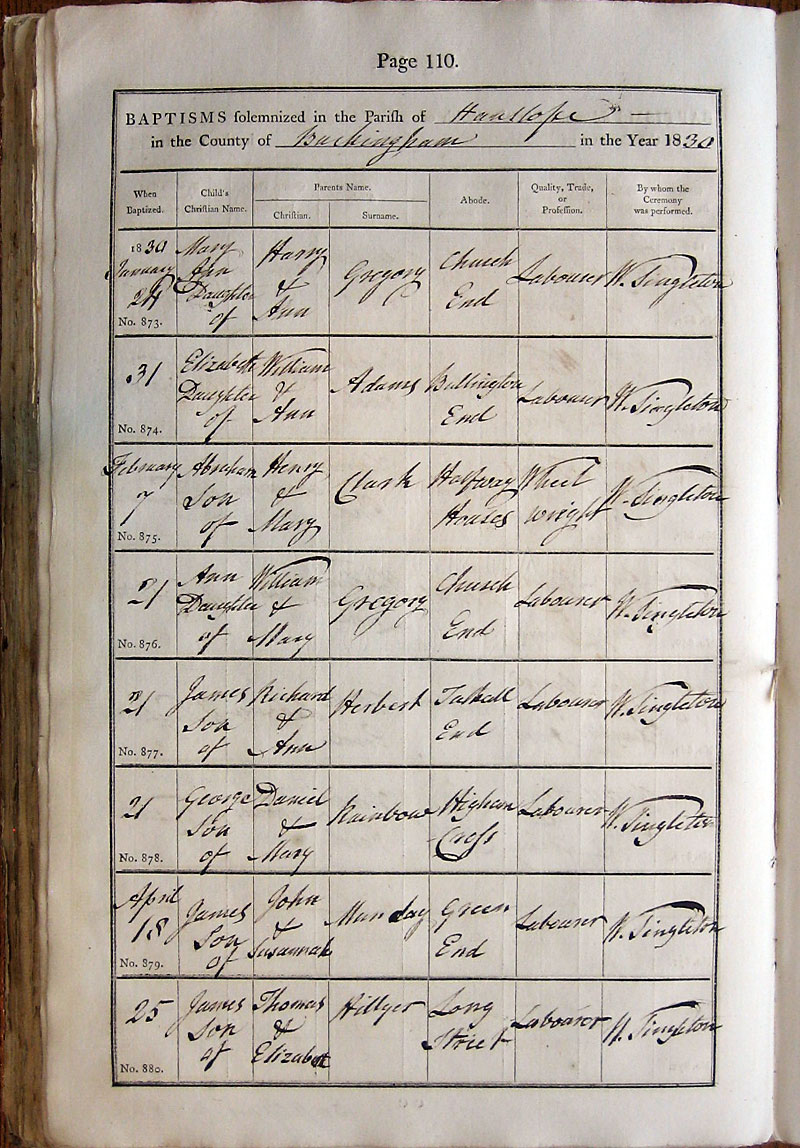 Page 110.
BAPTISMS solemnized in the Parish of Hanslope
in the County of Buckingham in the Year 1830
When Baptized.
Child's Christian Name.
Parents Name.
Christian.
Surname.
Abode.
Quality, Trade, or Profession.
By whom the Ceremony was performed.
1830
January
24
No. 873.
Mary
Ann
Daughter
of
Harry
&
Ann
Gregory
Church
End
Labourer
W. Singleton
31
No. 874.
Elizabeth
Daughter
of
William
&
Ann
Adams
Bullington
End
Labourer
W. Singleton
February
7
No. 875.
Abraham
Son
of
Henry
&
Mary
Clark
Halfway
Houses
Wheel
wright
W. Singleton
21
No. 876.
Ann
Daughter
of
William
&
Mary
Gregory
Church
End
Labourer
W. Singleton
21
No. 877.
James
Son
of
Richard
&
Ann
Herbert
Tathall
End
Labourer
W. Singleton
21
No. 878.
George
Son
of
Daniel
&
Mary
Rainbow
Higham
Cross
Labourer
W. Singleton
April
18
No. 879.
James
Son
of
John
&
Susannah
Munday
Green
End
Labourer
W. Singleton
25
No. 880.
James
Son
of
Thomas
&
Elizabeth
Hillyer
Long
Street
Labourer
W. Singleton